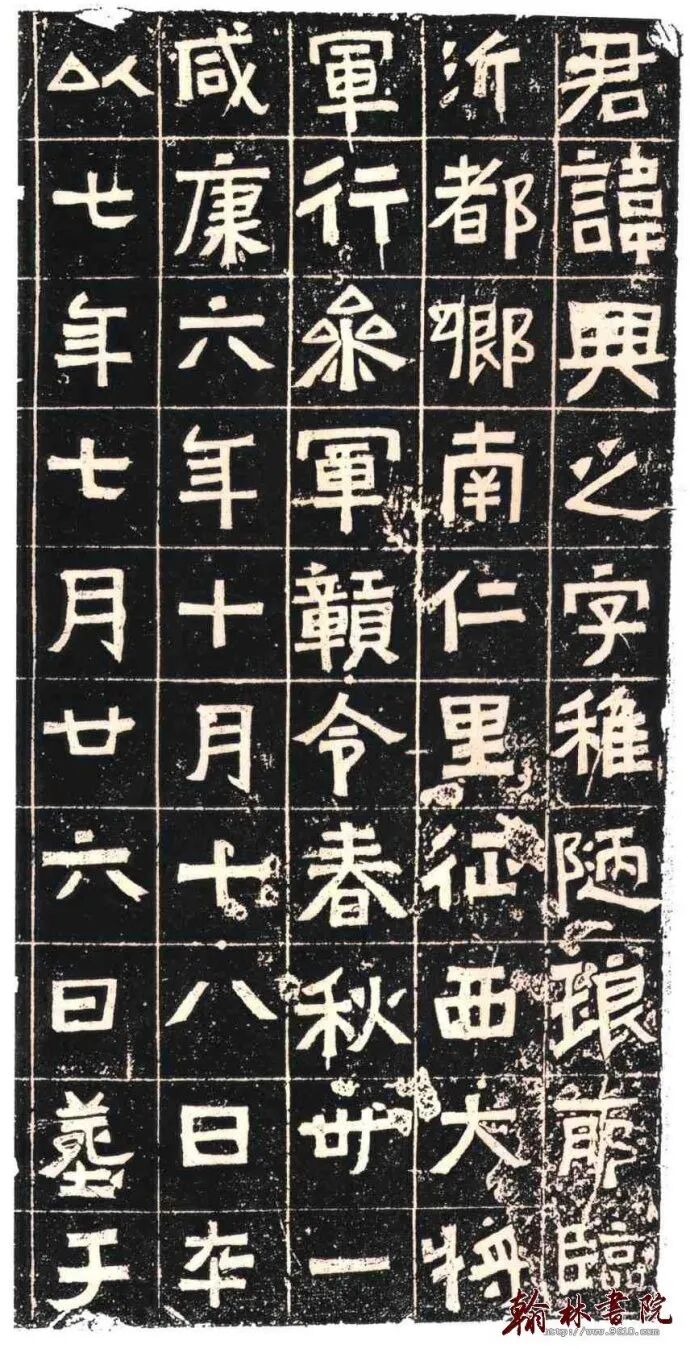 君諱興之字稚陋琅耶臨
沂都鄉南仁里征西大將
軍行參軍贛令春秋卅一
咸康六年十月十八日卒
以七年七月廿六日葬于
翰林書院
http://www.9610.com